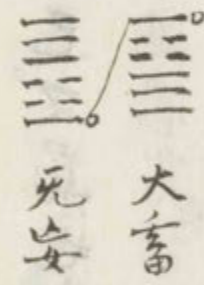 大畜
无妄